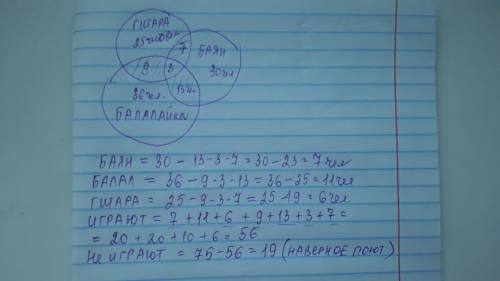 ГИТАРА
25 человек
7
БАЯН
30 чел
9
3
13 ч.
36 чел.
БАЛАЛАЙКА
БАЯН = 30 - 13 - 3 - 7 = 30 - 23 = 7 чел
БАЛАЛ = 36 - 9 - 3 - 13 = 36 - 25 = 11 чел
ГИТАРА = 25 - 9 - 3 - 7 = 25 - 19 = 6 чел
ИГРАЮТ = 7 + 11 + 6 + 9 + 13 + 3 + 7 =
= 20 + 20 + 10 + 6 = 56
НЕ ИГРАЮТ = 75 - 56 = 19 (НАВЕРНОЕ ПОЮТ)